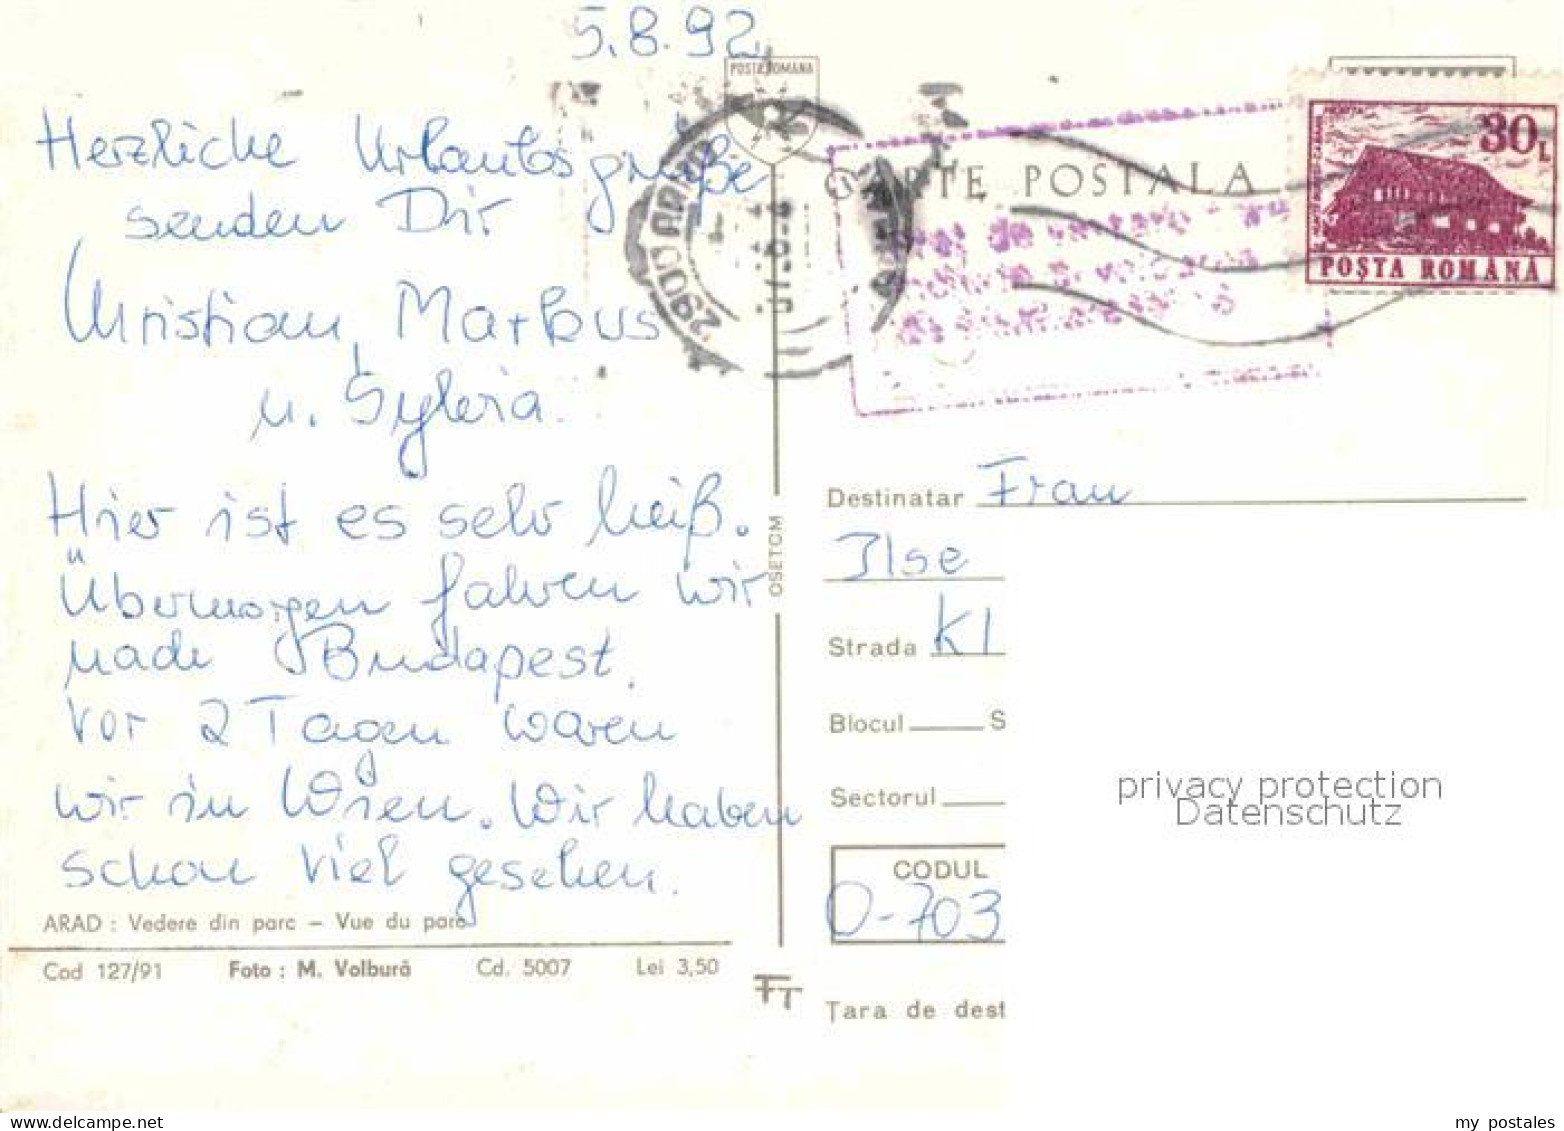 5.8.92
POSTA ROMANA
Herzliche Urlaubsgrüße
senden Dir
Christian, Markus
u. Sylvia.
Hier ist es sehr heiß.
Übermorgen fahren wir
nach Budapest.
Vor 2 Tagen waren
wir in Wien. Wir haben
schon viel gesehen.
ARAD : Vedere din parc – Vue du parc
Cod 127/91 Foto : M. Volbură Cd. 5007 Lei 3,50
OSETCM
FT
2900 ARAD
CARTE POSTALA
30L
POȘTA ROMÂNĂ
Destinatar Frau
Ilse
Strada Kl
Blocul S
Sectorul
CODUL
O-703
Țara de dest
privacy protection
Datenschutz
www.delcampe.net
my postales